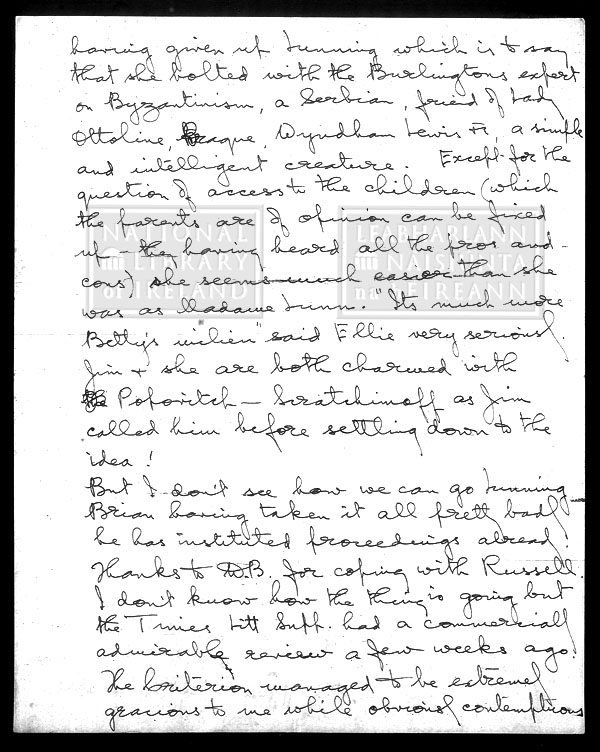 having given up Lunning which is to say
that she bolted with the Burlingtons expert
on Byzantinism, a Serbian, friend of Lady
Ottoline, Braque, Wyndham Lewis &, a simple
and intelligent creature. Except for the
question of access to the children (which
the parents are of opinion can be fixed
up they having heard all the pros and
cons) she seems much easier than she
was as Madame Lunn. "Its much more
Betty's milieu" said Ellie very seriously.
Jim & she are both charmed with
Popovitch – Scratchimoff as Jim
called him before settling down to the
idea!
But I don't see how we can go Lunning
Brian having taken it all pretty badly
he has instituted proceedings already!
Thanks to D.B. for coping with Russell.
I don't know how the thing is going but
the Times Litt Supp. had a commercially
admirable review a few weeks ago.
The Criterion managed to be extremely
gracious to me while obviously contemptuous
NATIONAL LIBRARY OF IRELAND
LEABHARLANN NA hÉIREANN